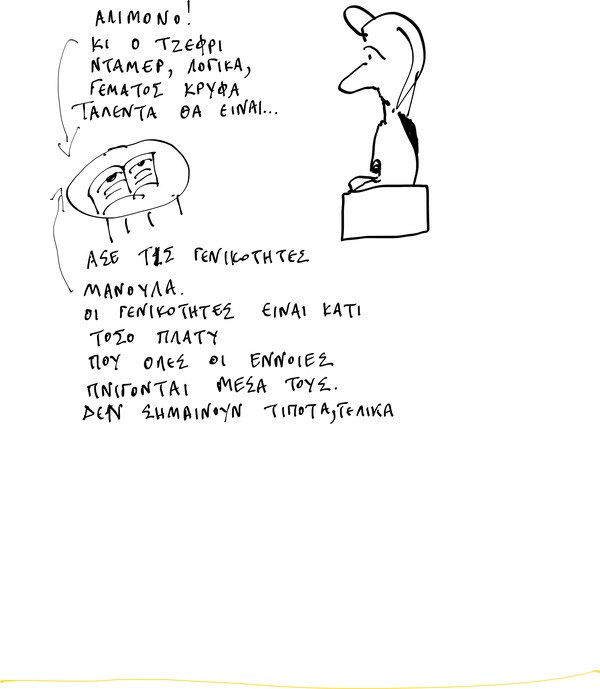 ΑΛΙΜΟΝΟ!
ΚΙ Ο ΤΖΕΦΡΙ
ΝΤΑΜΕΡ, ΛΟΓΙΚΑ,
ΓΕΜΑΤΟΣ ΚΡΥΦΑ
ΤΑΛΕΝΤΑ ΘΑ ΕΙΝΑΙ...
ΑΣΕ ΤΙΣ ΓΕΝΙΚΟΤΗΤΕΣ
ΜΑΝΟΥΛΑ.
ΟΙ ΓΕΝΙΚΟΤΗΤΕΣ ΕΙΝΑΙ ΚΑΤΙ
ΤΟΣΟ ΠΛΑΤΥ
ΠΟΥ ΟΛΕΣ ΟΙ ΕΝΝΟΙΕΣ
ΠΝΙΓΟΝΤΑΙ ΜΕΣΑ ΤΟΥΣ.
ΔΕΝ ΣΗΜΑΙΝΟΥΝ ΤΙΠΟΤΑ, ΤΕΛΙΚΑ